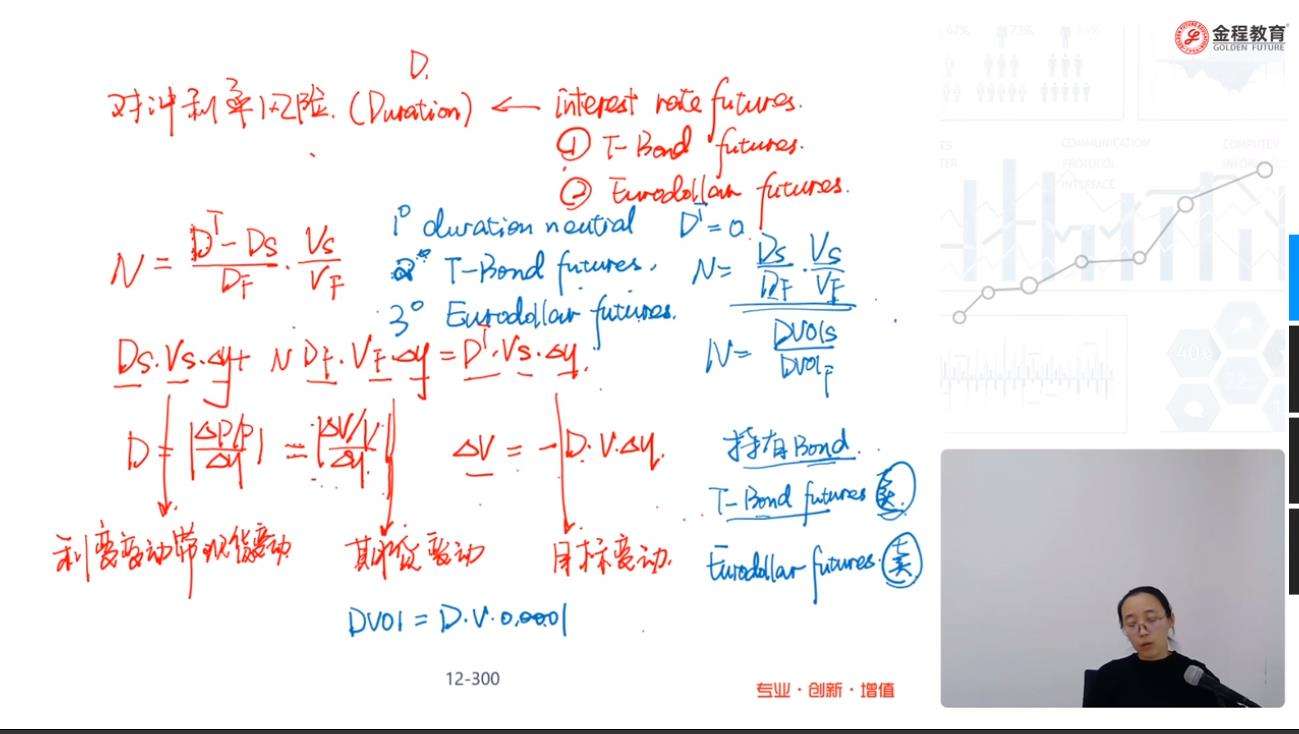 金程教育
GOLDEN FUTURE
D.
对冲利率风险. (Duration) ← interest rate futures.
① T-Bond futures.
② Eurodollar futures.
N = (D^T - Ds)/D_F · Vs/V_F
1° duration neutral D^T = 0.
2° T-Bond futures. N = Ds/D_F · Vs/V_F
3° Eurodollar futures.
N = DV01s/DV01_F
Ds·Vs·Δy + N D_F·V_F·Δy = D^T·Vs·Δy.
D = |ΔP/P / Δy| = |ΔV/V / Δy| ΔV = -D·V·Δy.
持有Bond
T-Bond futures 卖
Eurodollar futures. 卖
利率变动带现货变动 期货变动 目标变动.
DV01 = D·V·0.0001
12-300
专业·创新·增值
COMMUNICATION
PROTOCOL
INTERFACE